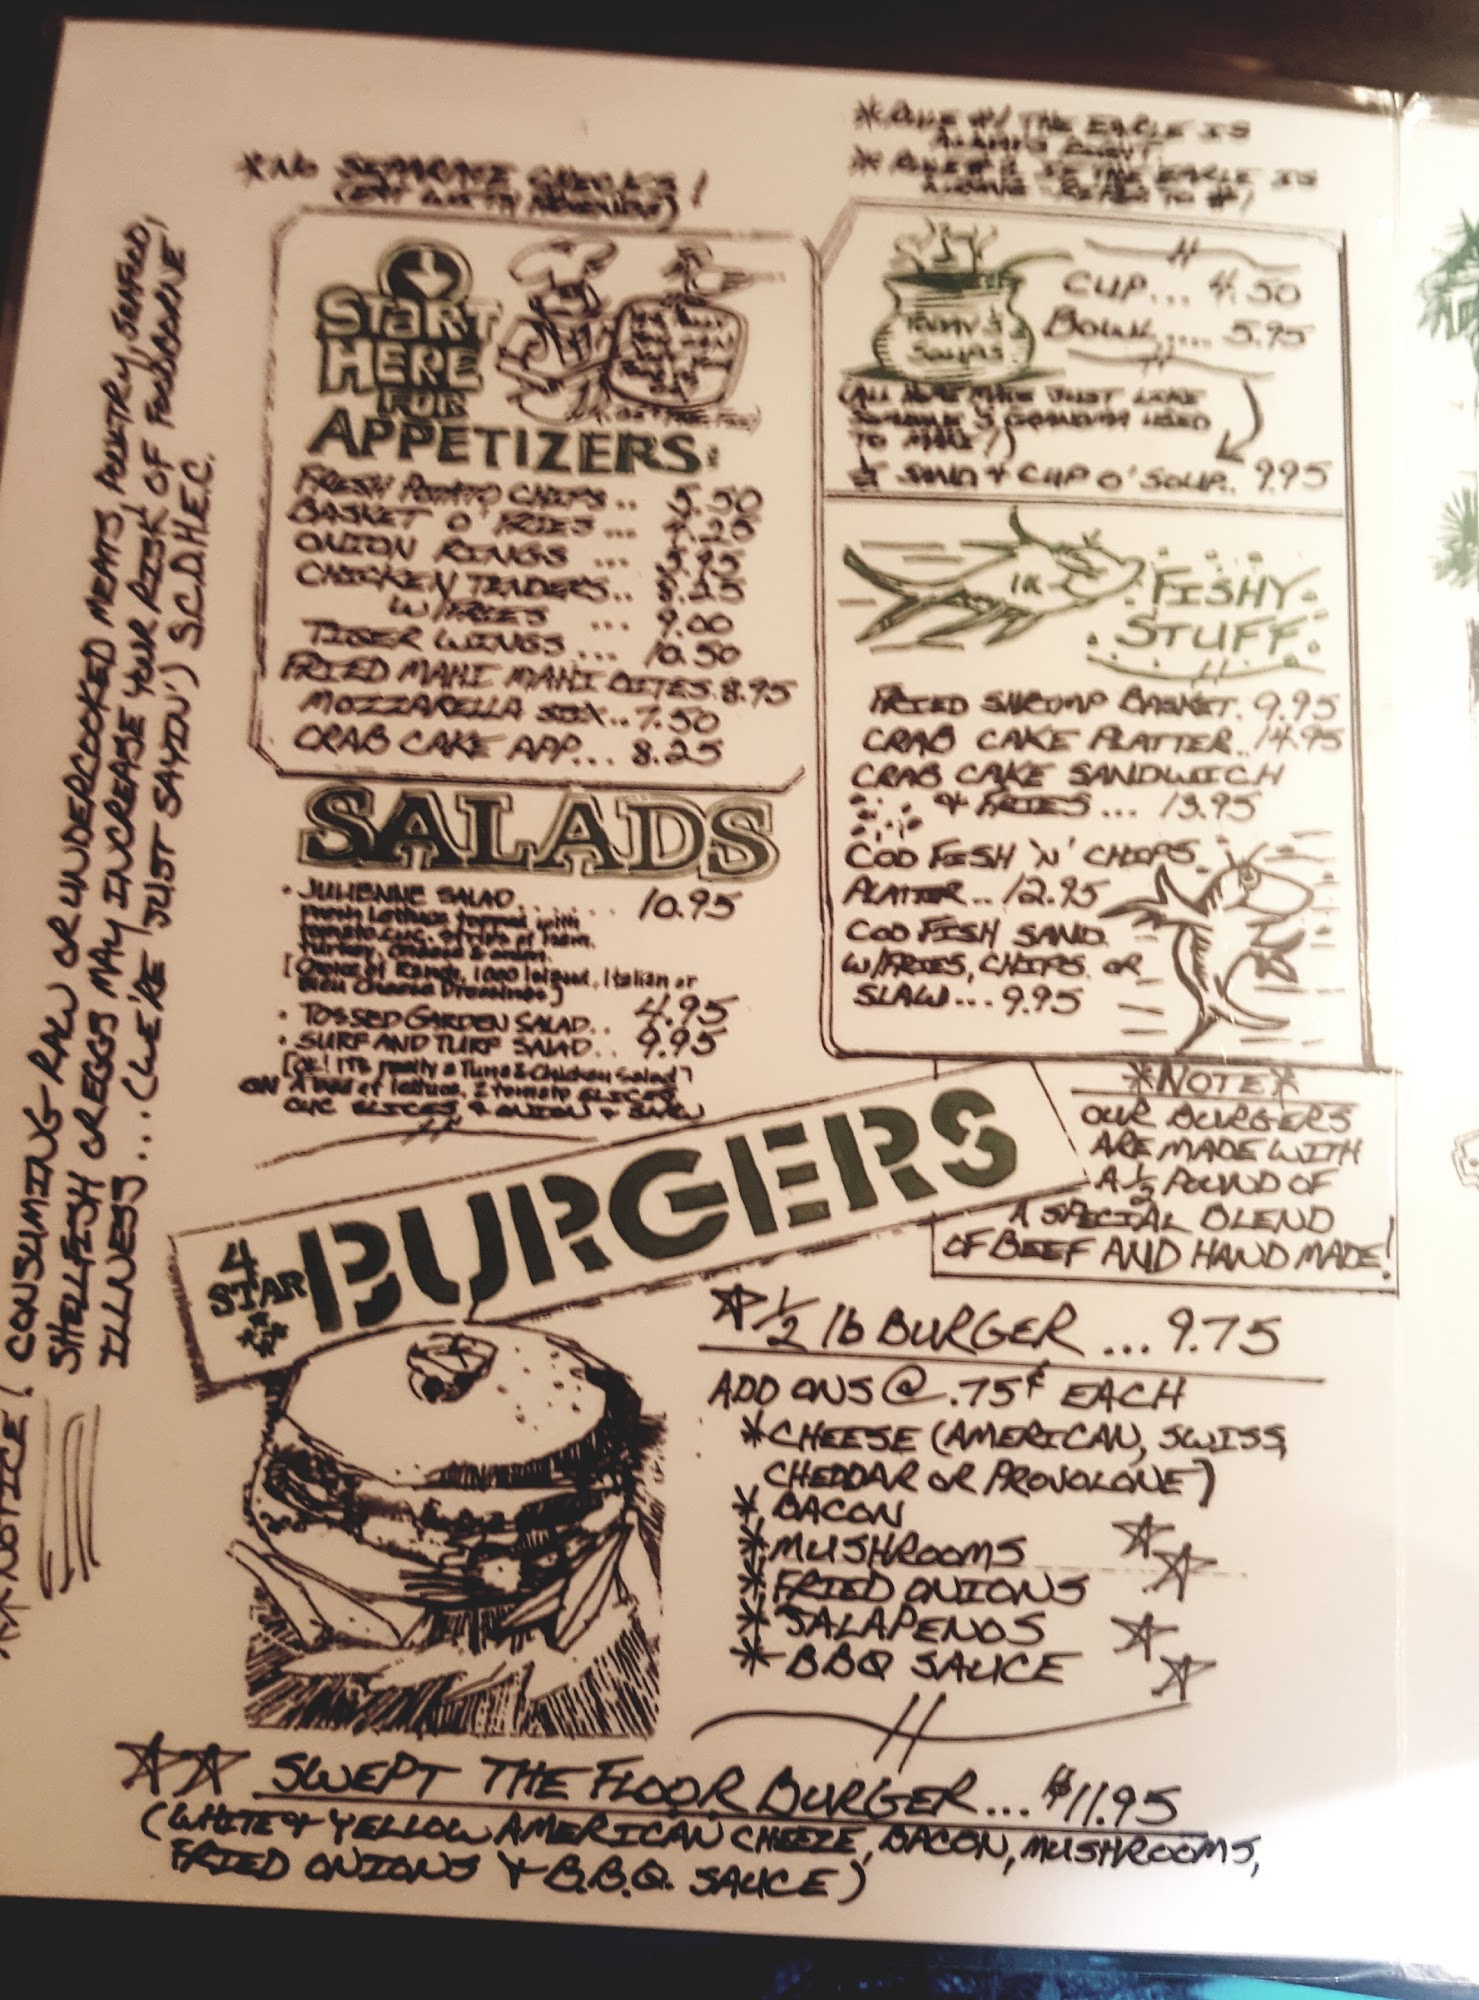 *NO SEPARATE CHECKS!
*RULE #1 THE EAGLE IS
ALWAYS RIGHT.
*RULE #2 IF THE EAGLE IS
REFER TO #1
START
HERE
FOR
APPETIZERS:
FRESH POTATO CHIPS.. 5.50
BASKET O' FRIES... 4.25
ONION RINGS ... 5.95
CHICKEN TENDERS.. 8.25
W/FRIES ... 9.00
TIGER WINGS... 10.50
FRIED MAHI MAHI BITES.8.95
MOZZARELLA STIX..7.50
CRAB CAKE APP... 8.25
CUP... 4.50
BOWL.... 5.95
(ALL HOME MADE JUST LIKE
SOMEONE'S GRANDMA USED
TO MAKE!)
½ SAND & CUP O' SOUP.. 9.95
FISHY
STUFF
FRIED SHRIMP BASKET. 9.95
CRAB CAKE PLATTER..14.95
CRAB CAKE SANDWICH
& FRIES... 13.95
COD FISH 'N' CHIPS
PLATTER..12.95
COD FISH SAND.
W/FRIES, CHIPS OR
SLAW...9.95
SALADS
• JULIENNE SALAD....... 10.95
Fresh Lettuce topped with
tomato, cuc. strips of ham,
turkey, cheese & onion.
[Choice of Ranch, 1000 Island, Italian or
Bleu Cheese Dressings)
• TOSSED GARDEN SALAD.. 4.95
• SURF AND TURF SALAD.. 9.95
[OK! IT'S really a Tuna & Chicken Salad]
ON A bed of lettuce, 2 tomato SLICES,
CUC SLICES, & ONION &
4
STAR
BURGERS
*NOTE*
OUR BURGERS
ARE MADE WITH
A ½ POUND OF
A SPECIAL BLEND
OF BEEF AND HAND MADE!
½ lb BURGER... 9.75
ADD ONS @ .75¢ EACH
*CHEESE (AMERICAN, SWISS,
CHEDDAR OR PROVOLONE)
*BACON
*MUSHROOMS
*FRIED ONIONS
*JALAPENOS
*BBQ SAUCE
SWEPT THE FLOOR BURGER... $11.95
(WHITE & YELLOW AMERICAN CHEEZE, BACON, MUSHROOMS,
FRIED ONIONS & B.B.Q. SAUCE)
**NOTICE! CONSUMING RAW OR UNDERCOOKED MEATS, POULTRY, SEAFOOD,
SHELLFISH OR EGGS MAY INCREASE YOUR RISK OF FOODBORNE
ILLNESS...(WE'RE JUST SAYIN') S.C.D.H.E.C.